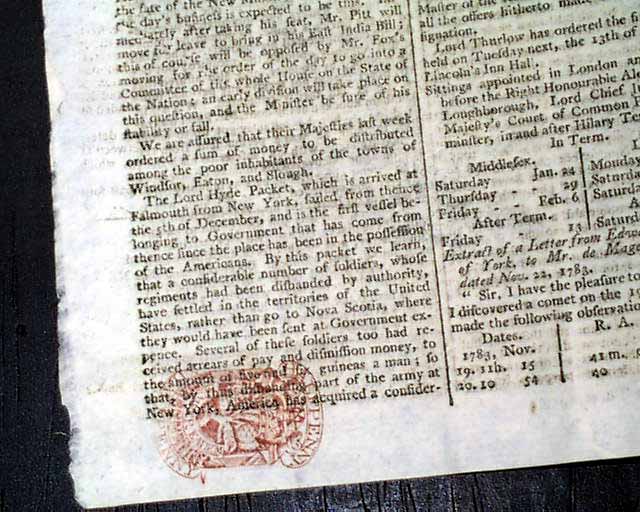 the fate of the New
the day's business is expected to be this. Im-
mediately after taking his seat, Mr. Pitt will
move for leave to bring in his East India Bill;
this of course will be opposed by Mr. Fox's
moving for the order of the day to go into a
Committee of the whole House on the State of
the Nation; an early division will take place on
this question, and the Minister be sure of his
stability or fall.
We are assured that their Majesties last week
ordered a sum of money to be distributed
among the poor inhabitants of the towns of
Windsor, Eaton, and Slough.
The Lord Hyde Packet, which is arrived at
Falmouth from New York, sailed from thence
the 5th of December, and is the first vessel be-
longing to Government that has come from
thence since the place has been in the possession
of the Americans. By this packet we learn,
that a considerable number of soldiers, whose
regiments had been disbanded by authority,
have settled in the territories of the United
States, rather than go to Nova Scotia, where
they would have been sent at Government ex-
pence. Several of these soldiers too had re-
ceived arrears of pay and dismission money, to
the amount of five and guineas a man; so
that, by thus disbanding part of the army at
New York, America has acquired a consider-
Master of the
all the offers hitherto made
signation.
Lord Thurlow has ordered the
held on Tuesday next, the 13th of
Lincoln's Inn Hall.
Sittings appointed in London and
before the Right Honourable A
Loughborough, Lord Chief Ju
Majesty's Court of Common
minster, in and after Hilary Te
In Term.
Middlesex. L
Saturday Jan. 24 Monda
Thursday - - 29 Saturda
Friday - - Feb. 6 Saturda
After Term. A
Friday - - 13 Saturd
Extract of a Letter from Edwa
of York, to Mr. de Mag
dated Nov. 22, 1783.
" Sir, I have the pleasure t
I discovered a comet on the 19
made the following observatio
Dates. R. A.
1783, Nov.
19. 11h. 15 41 m.
20. 10 54 40